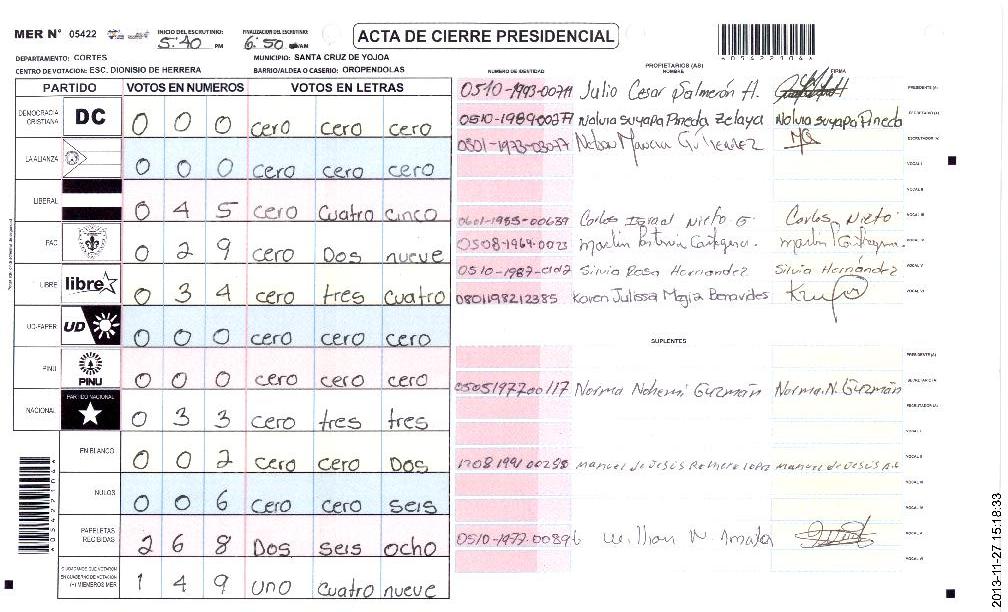 MER N° 05422 INICIO DEL ESCRUTINIO: 5:40 PM FINALIZACION DEL ESCRUTINIO: 6:50 ACTA DE CIERRE PRESIDENCIAL
DEPARTAMENTO: CORTES MUNICIPIO: SANTA CRUZ DE YOJOA
CENTRO DE VOTACION: ESC. DIONISIO DE HERRERA BARRIO/ALDEA O CASERIO: OROPENDOLAS
A05422104A
PROPIETARIOS (AS)
NUMERO DE IDENTIDAD NOMBRE FIRMA
PARTIDO VOTOS EN NUMEROS VOTOS EN LETRAS
DEMOCRACIA CRISTIANA DC 0 0 0 cero cero cero
LA ALIANZA 0 0 0 cero cero cero
LIBERAL 0 4 5 cero cuatro cinco
PAC 0 2 9 cero Dos nueve
LIBRE libre 0 3 4 cero tres cuatro
UD-FAPER UD 0 0 0 cero cero cero
PINU PINU 0 0 0 cero cero cero
NACIONAL PARTIDO NACIONAL 0 3 3 cero tres tres
EN BLANCO 0 0 2 cero cero Dos
NULOS 0 0 6 cero cero seis
PAPELETAS RECIBIDAS 2 6 8 Dos seis ocho
CIUDADANOS QUE VOTARON
EN CUADERNO DE VOTACION
(+) MIEMBROS MER 1 4 9 uno cuatro nueve
Julio Cesar Salmerón A. PRESIDENTE (A)
Nolvia Suyapa Pineda Zelaya Nolvia Suyapa Pineda SECRETARIO (A)
Nelson ESCRUTADOR (A)
VOCAL I
VOCAL II
0601-1985-00639 Carlos Israel Nieto G. Carlos Nieto VOCAL III
martin VOCAL IV
Silvia Rosa Hernandez Silvia Hernández VOCAL V
0801198212385 Karen Julissa Mejia Benavides VOCAL VI
SUPLENTES
PRESIDENTE (A)
0505197700117 Norma Nohemi Guzmán Norma N. Guzmán SECRETARIO (A)
ESCRUTADOR (A)
VOCAL I
manuel de Jesús Romero manuel de Jesús VOCAL II
VOCAL III
VOCAL IV
0510-1977-00896 VOCAL V
VOCAL VI
A05422104A
2013-11-27 15:18:33